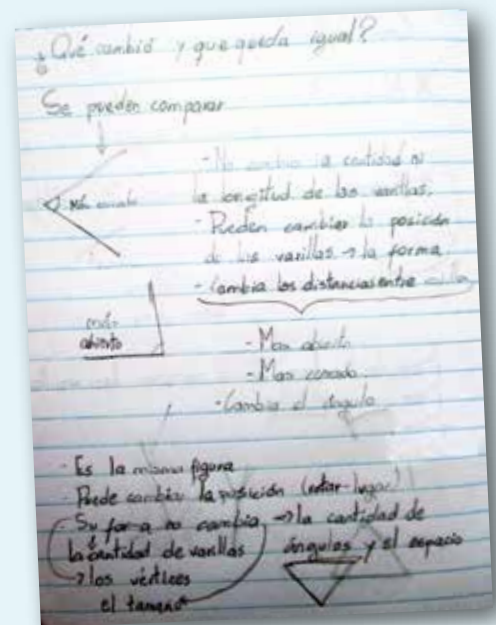 ¿Qué cambió y que queda igual?
Se pueden comparar
- No cambia la cantidad ni
más cerrado
la longitud de las varillas.
- Pueden cambiar la posición
de las varillas → la forma
- Cambia las distancias entre
más
abierto
- Mas abierto
- Mas cerrado
- Cambia el ángulo
- Es la misma figura
- Puede cambiar la posición (rotar-lugar)
- Su forma no cambia → la cantidad de
la cantidad de varillas ángulos y el espacio
→ los vértices
el tamaño